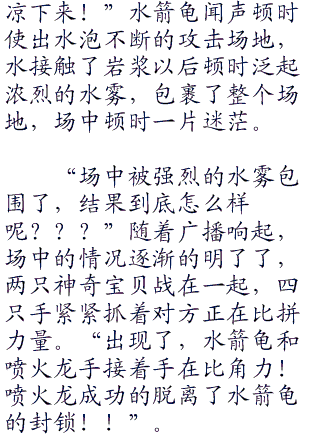 凉下来！”水箭龟闻声顿时
使出水泡不断的攻击场地，
水接触了岩浆以后顿时泛起
浓烈的水雾，包裹了整个场
地，场中顿时一片迷茫。
“场中被强烈的水雾包
围了，结果到底怎么样
呢？？？”随着广播响起，
场中的情况逐渐的明了了，
两只神奇宝贝战在一起，四
只手紧紧抓着对方正在比拼
力量。“出现了，水箭龟和
喷火龙手接着手在比角力！
喷火龙成功的脱离了水箭龟
的封锁！！”。